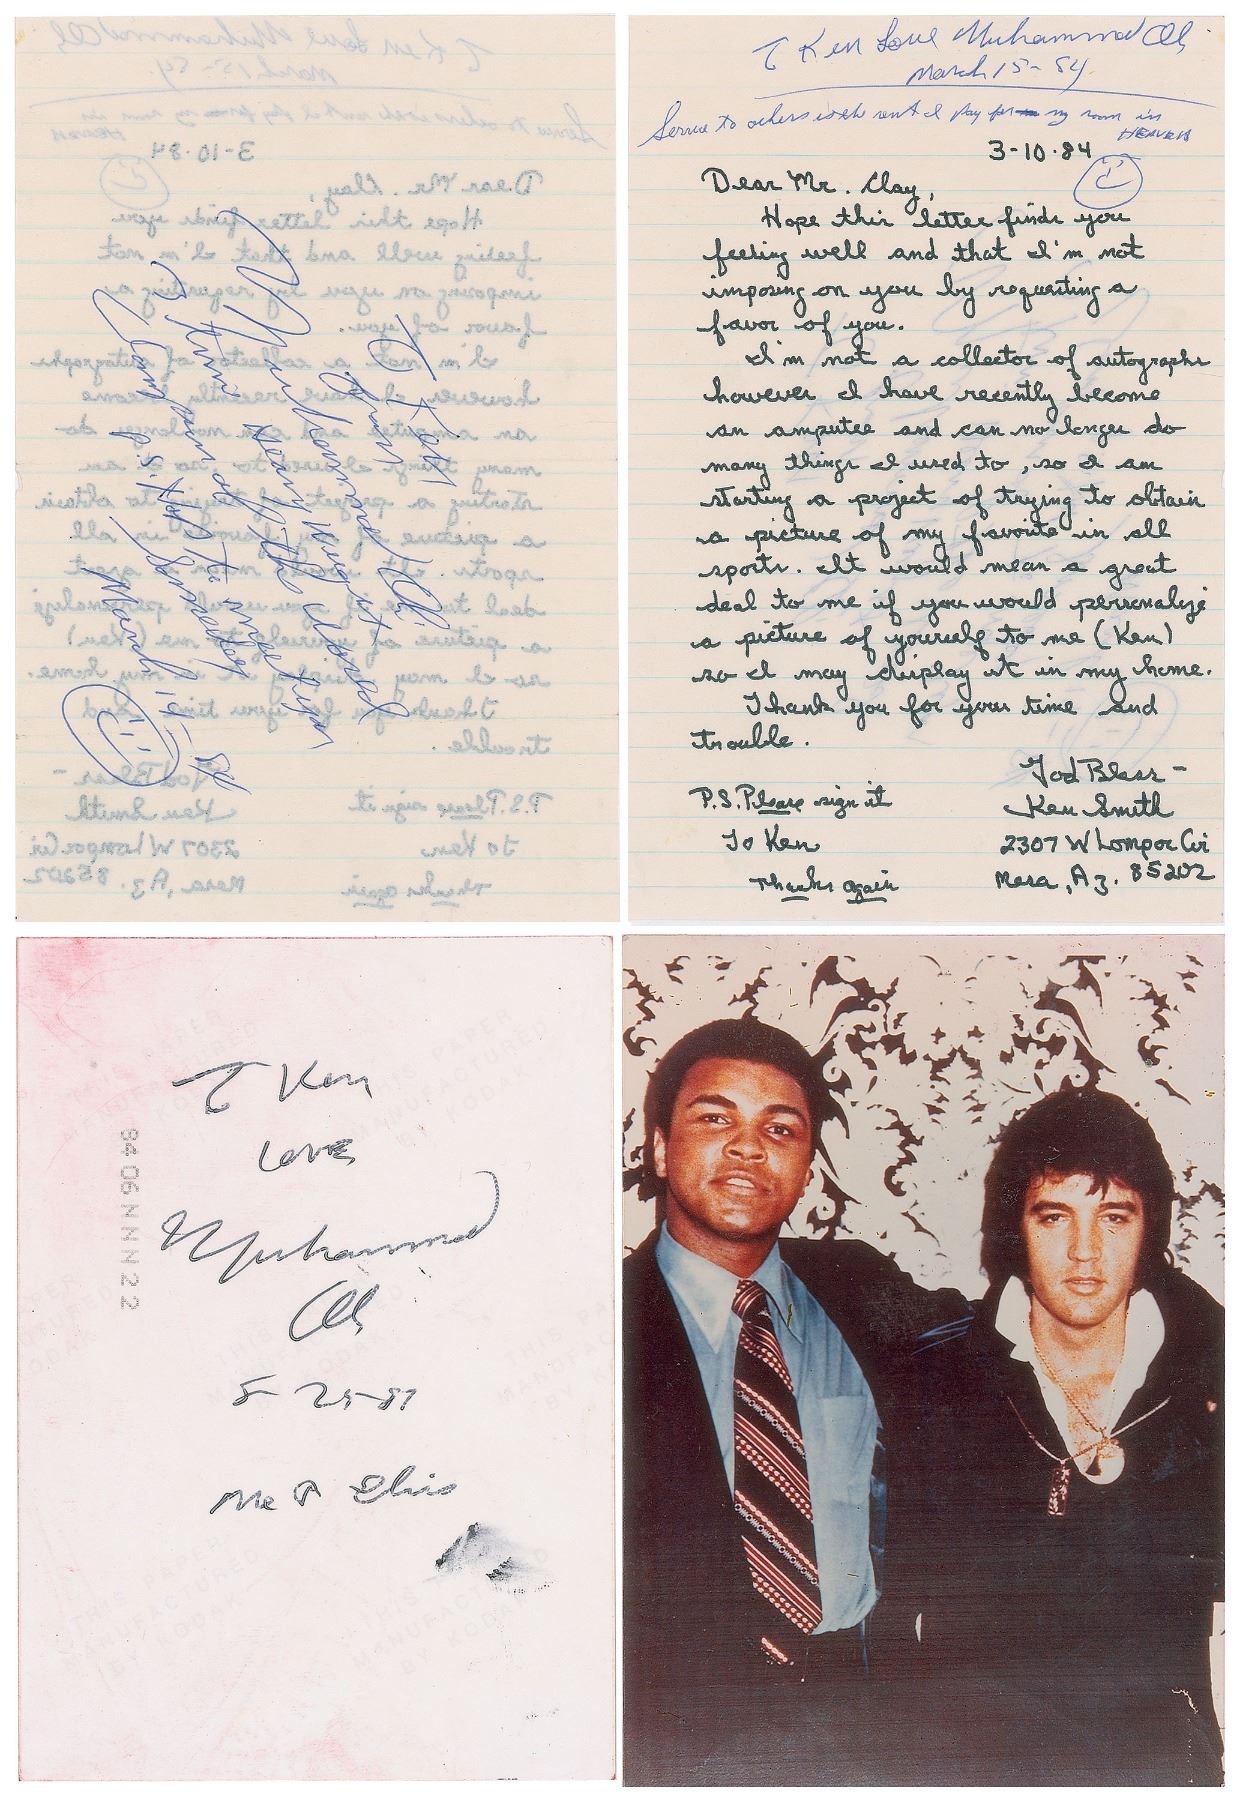 T Ken
From
Muhammad Ali
Heavy Weight
Champion of the
P.S. Hope to someday
March 15 - 84
T Ken Love Muhammad Ali
March 15 - 84
Service to others is the rent I pay for my room in
HEAVEN
3-10-84
Dear Mr. Clay,
Hope this letter finds you
feeling well and that I'm not
imposing on you by requesting a
favor of you.
I'm not a collector of autographs
however I have recently become
an amputee and can no longer do
many things I used to, so I am
starting a project of trying to obtain
a picture of my favorite in all
sports. It would mean a great
deal to me if you would personalize
a picture of yourself to me (Ken)
so I may display it in my home.
Thank you for your time and
trouble.
God Bless -
Ken Smith
2307 W Lompoc Cir
Mesa, Az. 85202
P.S. Please sign it
To Ken
Thanks again
T Ken
Love
Muhammad
Ali
8-25-87
Me & Elvis
8406NNNN22
THIS PAPER
MANUFACTURED
BY KODAK